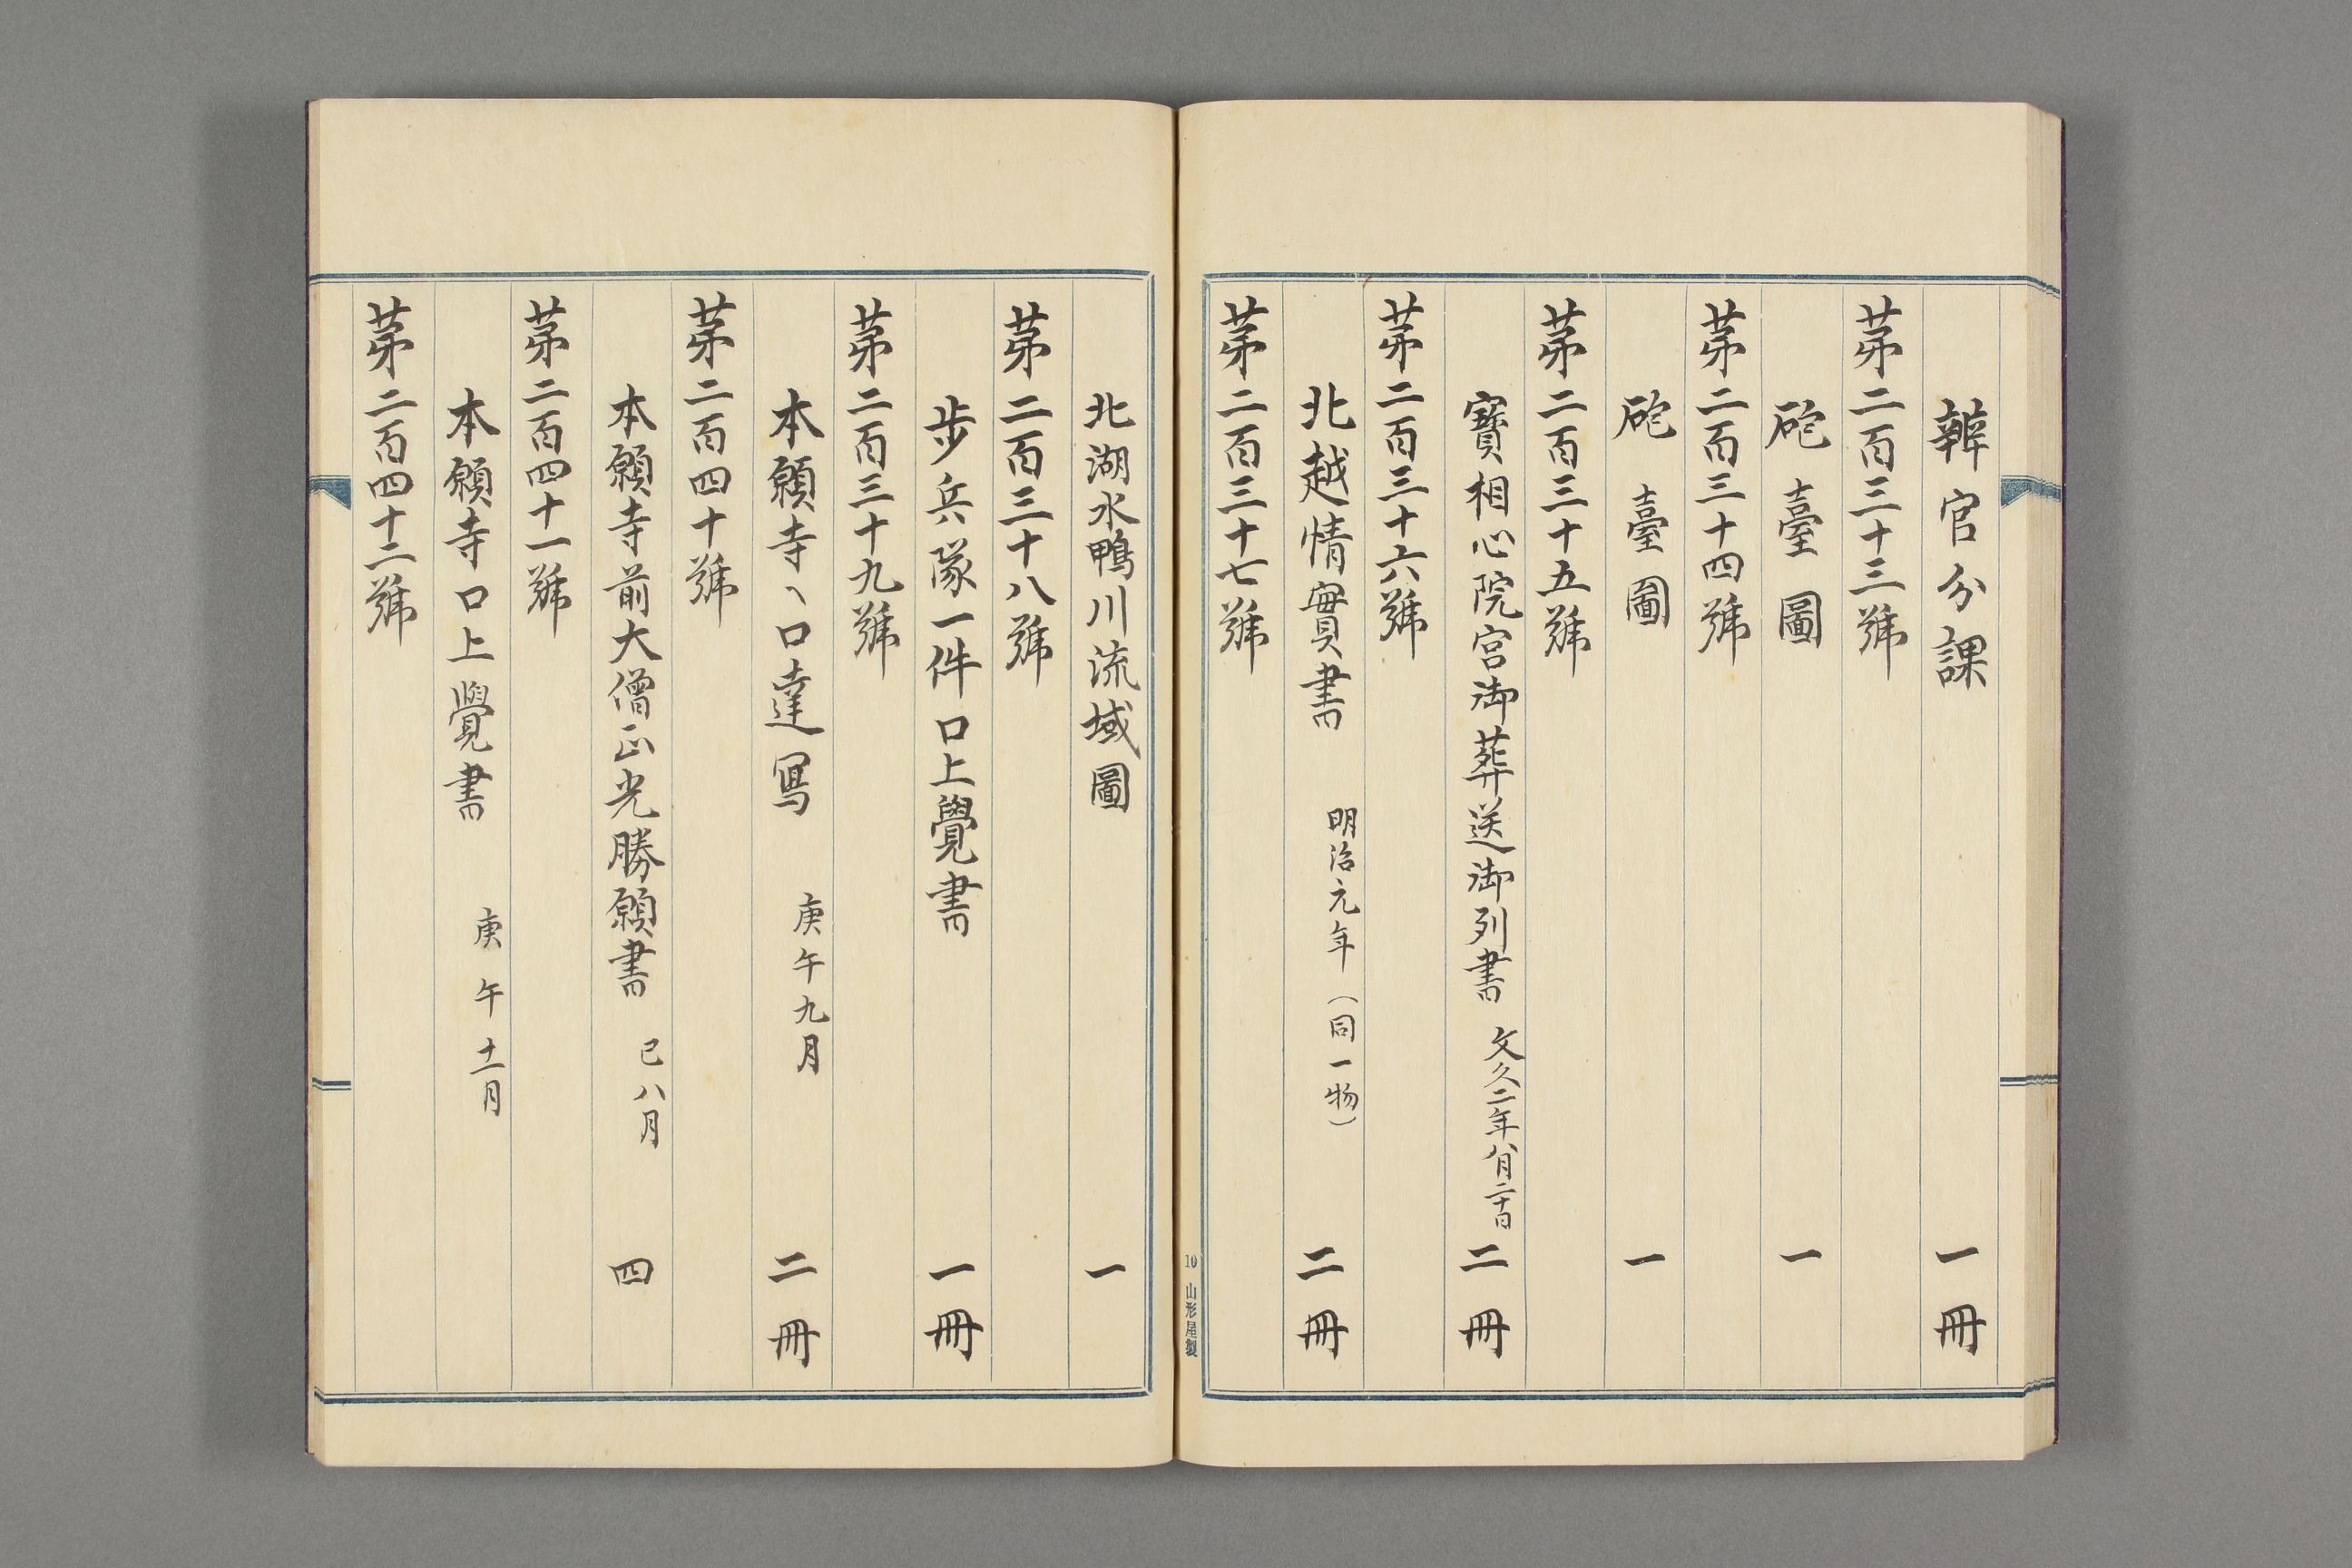 辨官分課 一冊
第二百三十三號
砲臺圖 一
第二百三十四號
砲臺圖 一
第二百三十五號
寶相心院宮御葬送御列書 文久二年八月二十日 二冊
第二百三十六號
北越情實書 明治元年(同一物) 二冊
第二百三十七號
10 山形屋製
北湖水鴨川流域圖 一
第二百三十八號
步兵隊一件口上覺書 一冊
第二百三十九號
本願寺ヘ口達寫 庚午九月 二冊
第二百四十號
本願寺前大僧正光勝願書 巳八月 四
第二百四十一號
本願寺口上覺書 庚午十一月
第二百四十二號